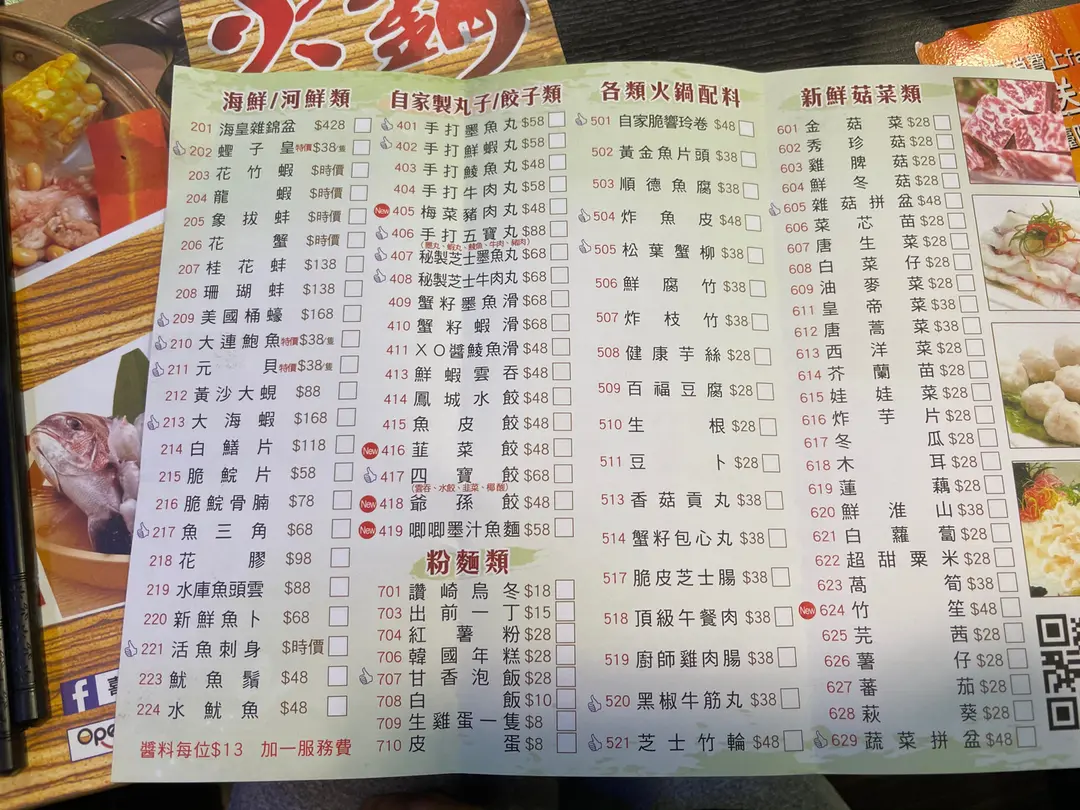 火鍋
海鮮/河鮮類
201 海皇雜錦盆 $428
202 蟶子皇 特價$38/隻
203 花竹蝦 $時價
204 龍蝦 $時價
205 象拔蚌 $時價
206 花蟹 $時價
207 桂花蚌 $138
208 珊瑚蚌 $138
209 美國桶蠔 $168
210 大連鮑魚 特價$38/隻
211 元貝 特價$38/隻
212 黃沙大蜆 $88
213 大海蝦 $168
214 白鱔片 $118
215 脆鯇片 $58
216 脆鯇骨腩 $78
217 魚三角 $68
218 花膠 $98
219 水庫魚頭雲 $88
220 新鮮魚卜 $68
221 活魚刺身 $時價
223 魷魚鬚 $48
224 水魷魚 $48
醬料每位$13 加一服務費
自家製丸子/餃子類
401 手打墨魚丸 $58
402 手打鮮蝦丸 $58
403 手打鯪魚丸 $48
404 手打牛肉丸 $58
New 405 梅菜豬肉丸 $48
406 手打五寶丸 $88
(墨丸、蝦丸、鯪魚、牛肉、豬肉)
407 秘製芝士墨魚丸 $68
408 秘製芝士牛肉丸 $68
409 蟹籽墨魚滑 $68
410 蟹籽蝦滑 $68
411 XO醬鯪魚滑 $48
413 鮮蝦雲吞 $48
414 鳳城水餃 $48
415 魚皮餃 $48
New 416 韮菜餃 $48
417 四寶餃 $68
(雲吞、水餃、韮菜、椰菜)
New 418 爺孫餃 $48
New 419 唧唧墨汁魚麵 $58
粉麵類
701 讚崎烏冬 $18
703 出前一丁 $15
704 紅薯粉 $28
706 韓國年糕 $28
707 甘香泡飯 $28
708 白飯 $10
709 生雞蛋一隻 $8
710 皮蛋 $8
各類火鍋配料
501 自家脆響玲卷 $48
502 黃金魚片頭 $38
503 順德魚腐 $38
504 炸魚皮 $48
505 松葉蟹柳 $38
506 鮮腐竹 $38
507 炸枝竹 $38
508 健康芋絲 $28
509 百福豆腐 $28
510 生根 $28
511 豆卜 $28
513 香菇貢丸 $38
514 蟹籽包心丸 $38
517 脆皮芝士腸 $38
518 頂級午餐肉 $38
519 廚師雞肉腸 $38
520 黑椒牛筋丸 $38
521 芝士竹輪 $48
新鮮菇菜類
601 金菇菜 $28
602 秀珍菇 $28
603 雞脾菇 $28
604 鮮冬菇 $28
605 雜菇拼盆 $48
606 菜芯苗 $28
607 唐生菜 $28
608 白菜仔 $28
609 油麥菜 $28
611 皇帝菜 $38
612 唐蒿菜 $38
613 西洋菜 $28
614 芥蘭苗 $28
615 娃娃菜 $28
616 炸芋片 $28
617 冬瓜 $28
618 木耳 $28
619 蓮藕 $28
620 鮮淮山 $38
621 白蘿蔔 $28
622 超甜粟米 $28
623 萵筍 $38
New 624 竹笙 $48
625 芫茜 $28
626 薯仔 $28
627 蕃茄 $28
628 萩葵 $28
629 蔬菜拼盆 $48